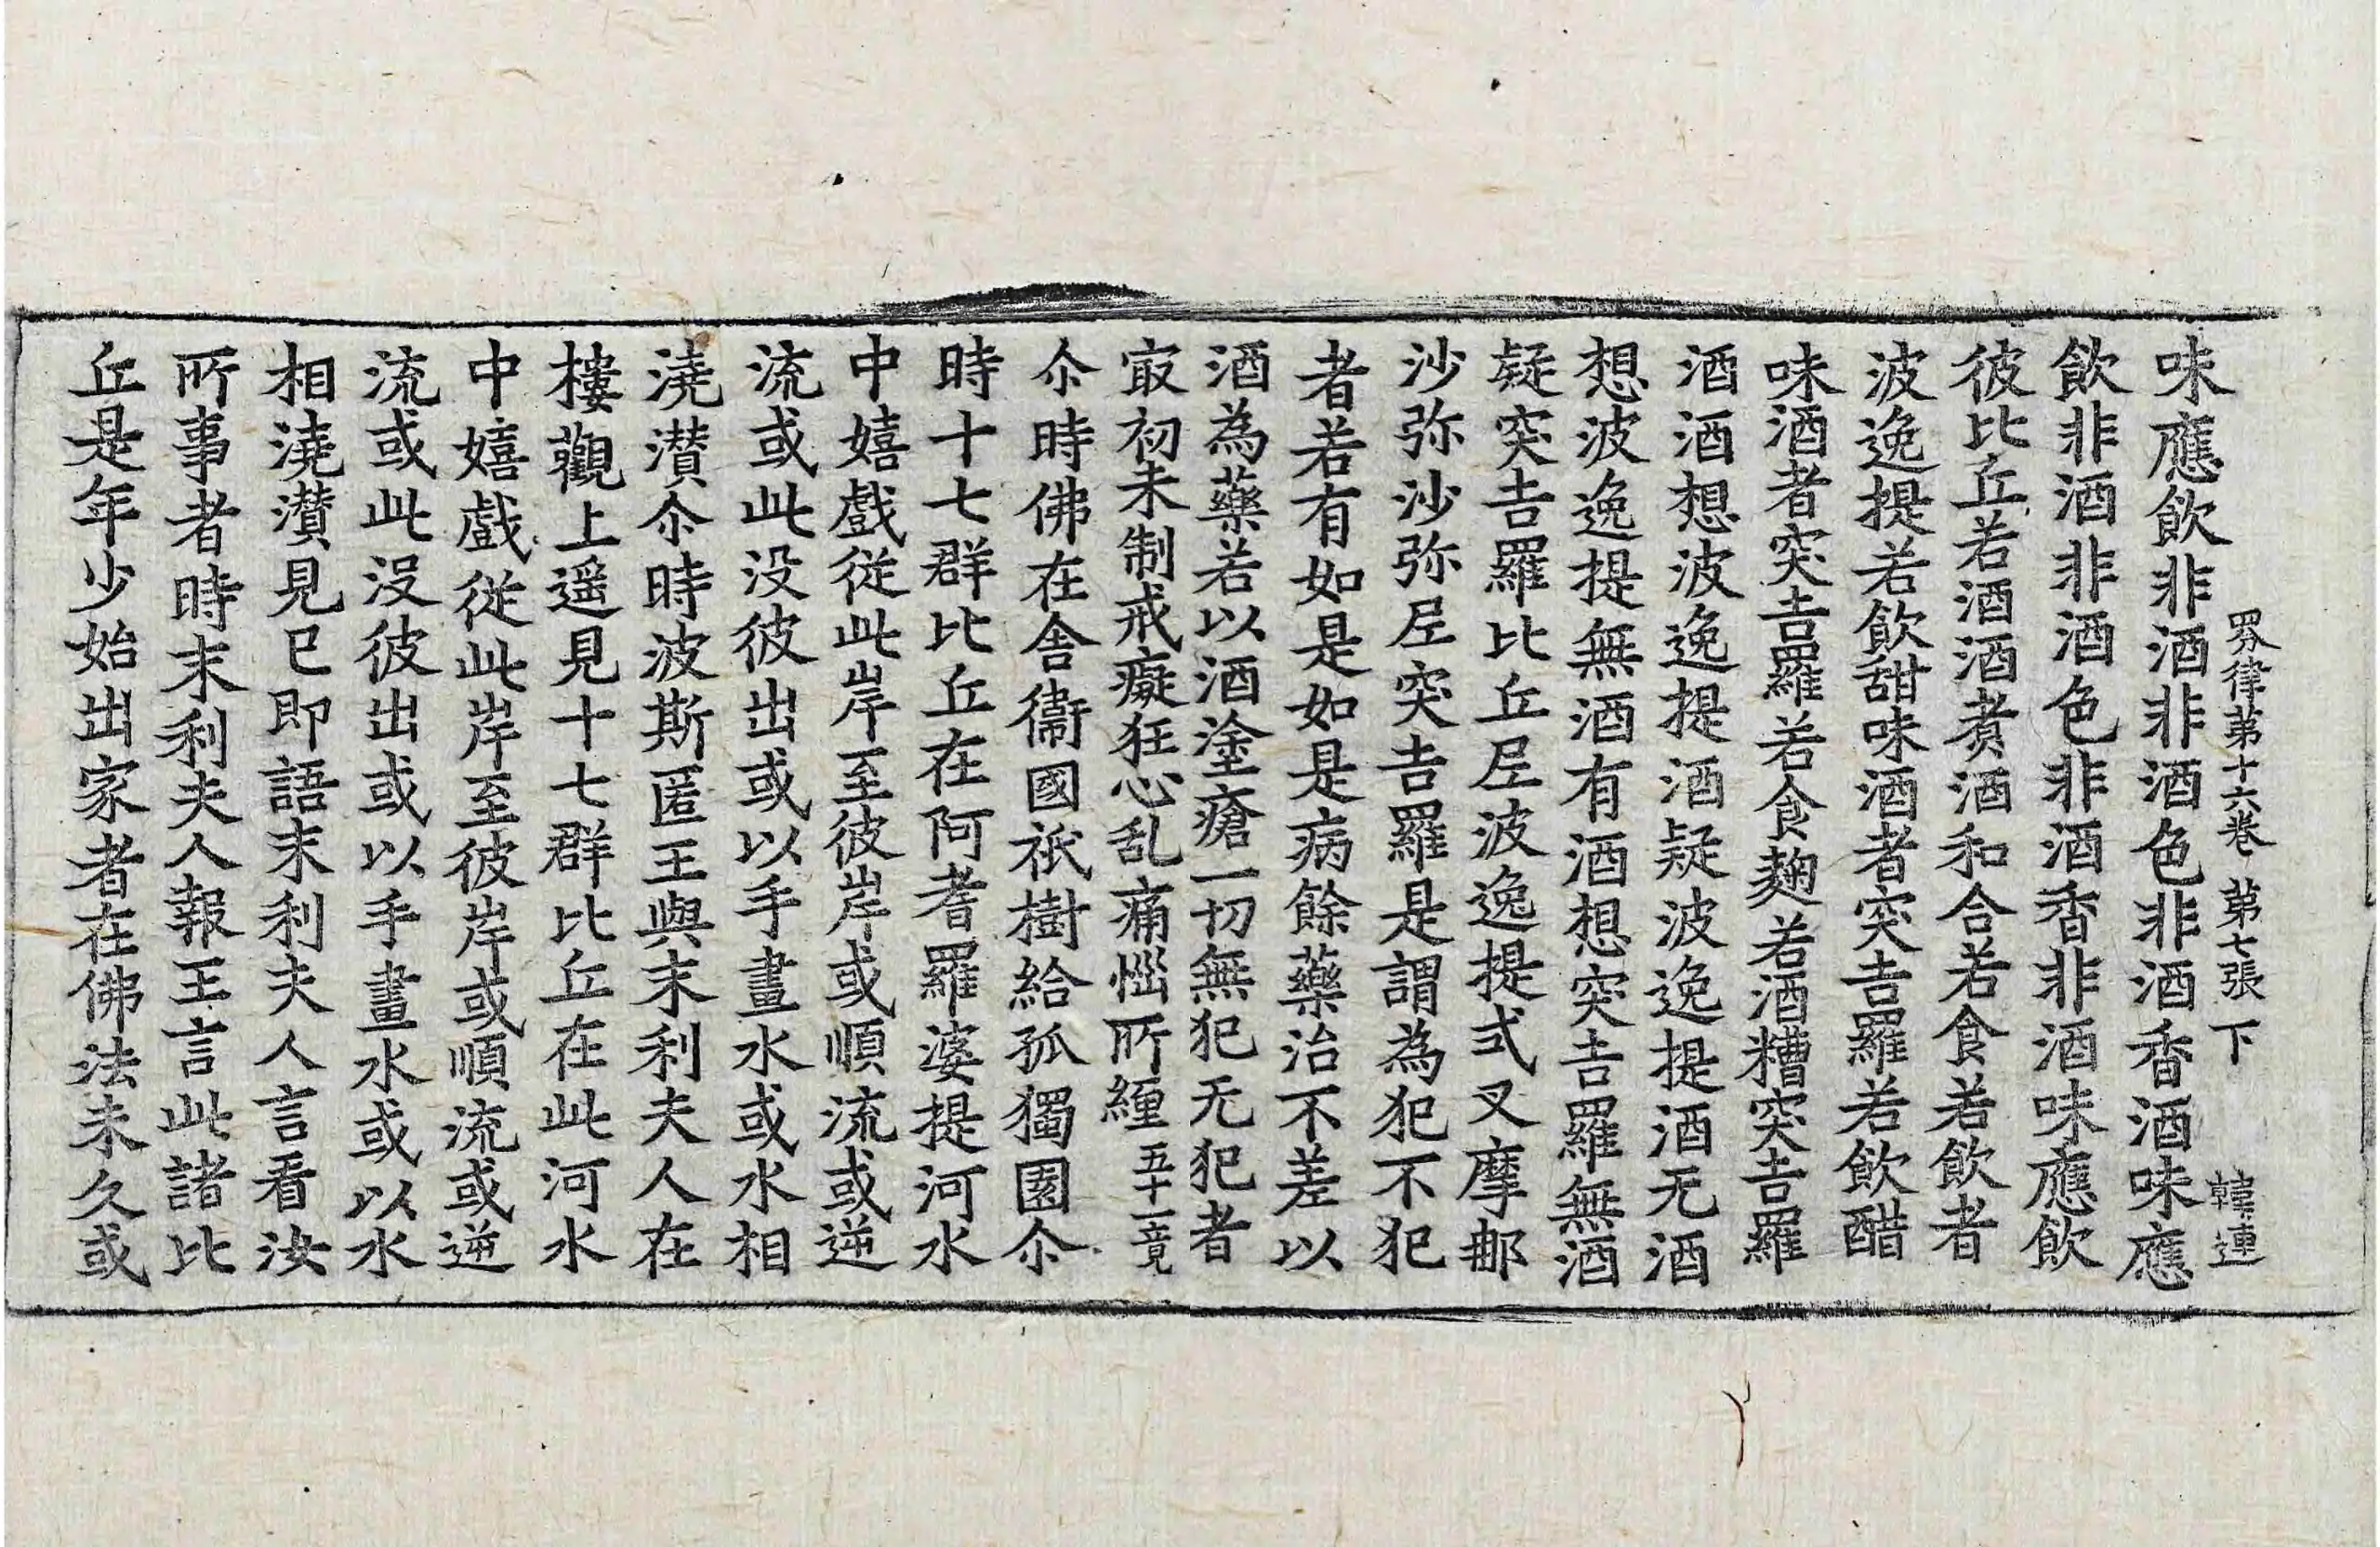 四分律第十六卷 第七張 下 韓連
味應飲非酒非酒色非酒香酒味應
飲非酒非酒色非酒香非酒味應飲
彼比丘若酒酒煑酒和合若食若飲者
波逸提若飲甜味酒者突吉羅若飲醋
味酒者突吉羅若食麹若酒糟突吉羅
酒酒想波逸提酒疑波逸提酒无酒
想波逸提無酒有酒想突吉羅無酒
疑突吉羅比丘尼波逸提式叉摩那
沙弥沙弥尼突吉羅是謂為犯不犯
者若有如是如是病餘藥治不差以
酒為藥若以酒塗瘡一切無犯无犯者
㝡初未制戒癡狂心乱痛惱所纏 五十一竟
尒時佛在舎衞國祇樹給孤獨園尒
時十七群比丘在阿耆羅婆提河水
中嬉戲從此岸至彼岸或順流或逆
流或此没彼出或以手畫水或水相
澆灒尒時波斯匿王與末利夫人在
樓觀上遥見十七群比丘在此河水
中嬉戲從此岸至彼岸或順流或逆
流或此没彼出或以手畫水或以水
相澆灒見已即語末利夫人言看汝
所事者時末利夫人報王言此諸比
丘是年少始出家者在佛法未久或